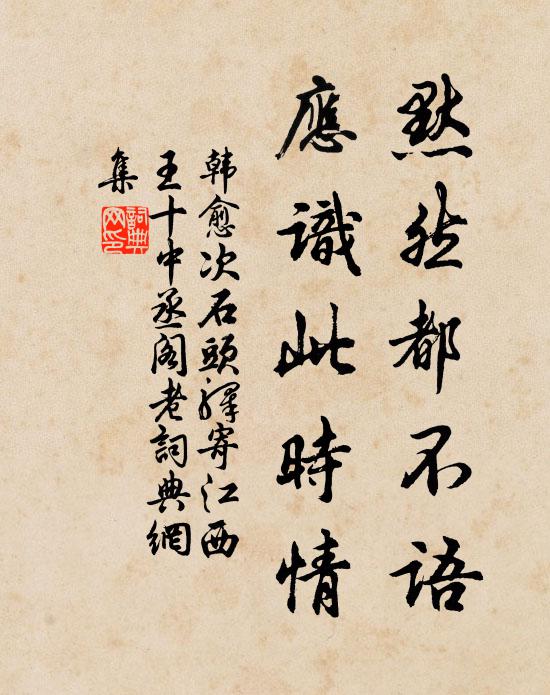 默然都不语
應識此時情
韩愈次石頭驛寄江西
王十中丞阁老詞典網
集
詞典
网印